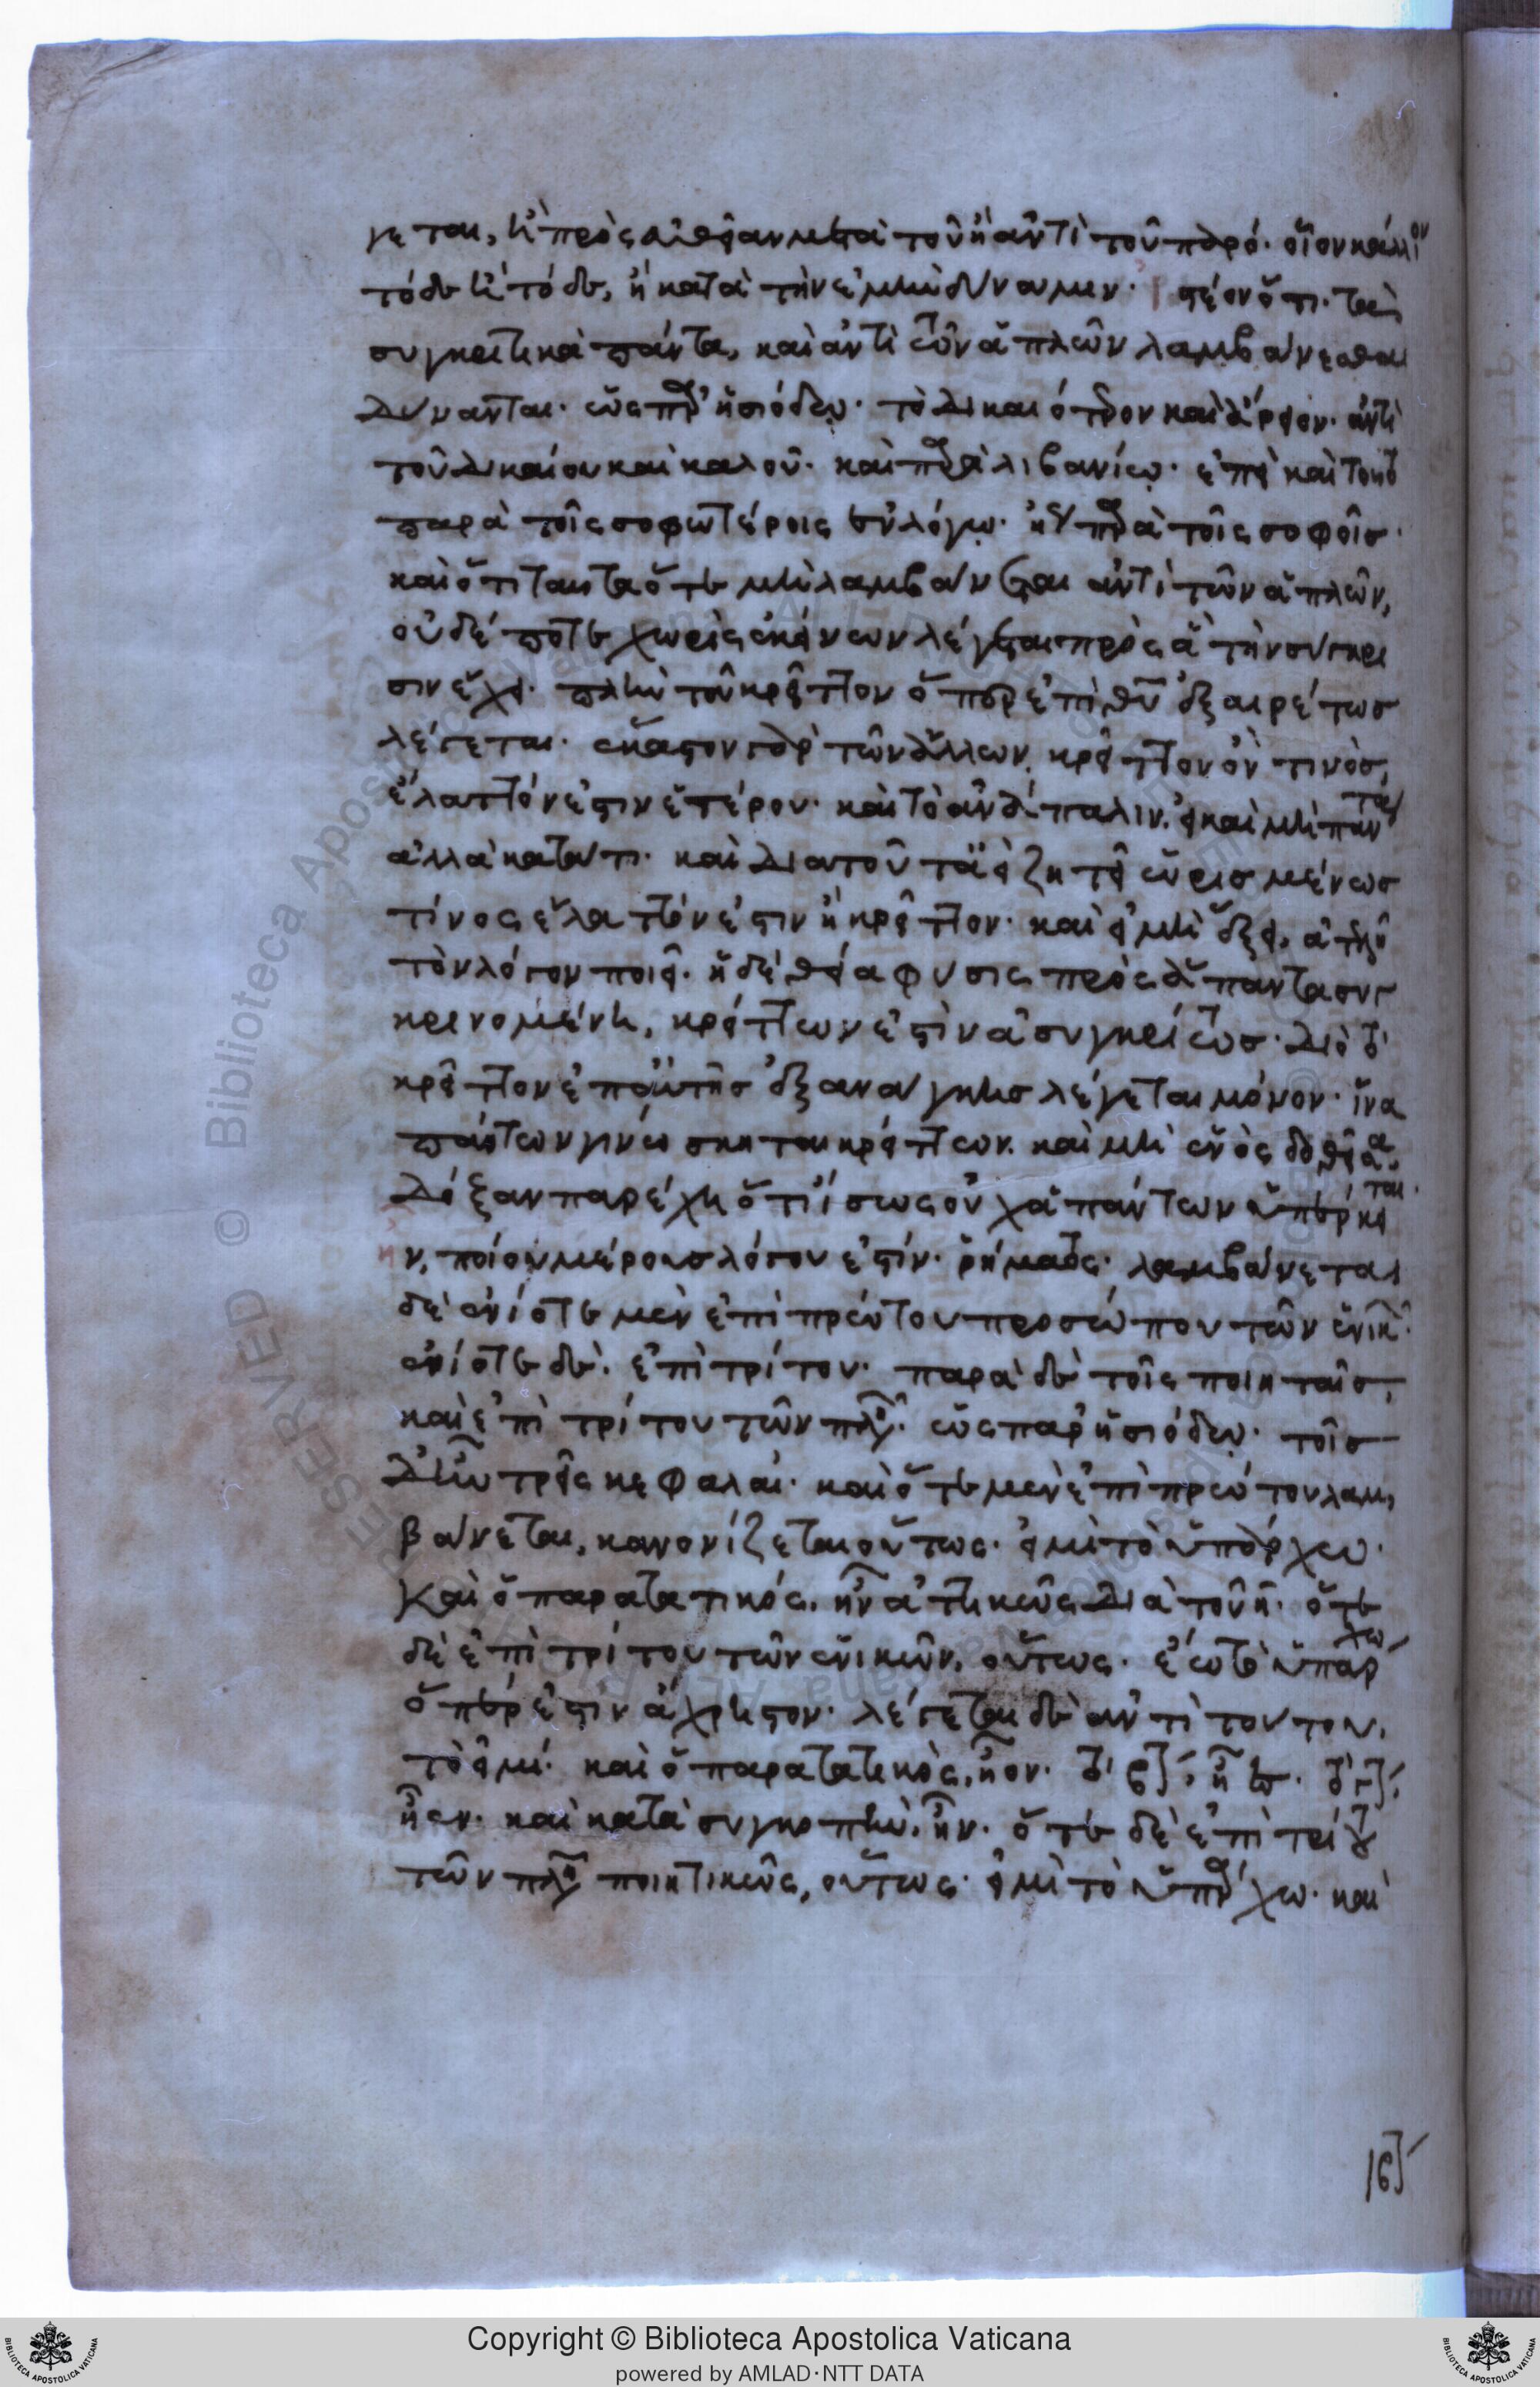 γεται, ἢ πρὸς εὐθεῖαν μετὰ τοῦ ἢ ἀντὶ τοῦ παρό· οἷον κάλλιον
τόδε ἢ τόδε, ἢ κατὰ τὴν ἐμὴν δύναμιν· ἰστέον ὅτι τὰ
συγκριτικὰ πάντα, καὶ ἀντὶ τῶν ἁπλῶν λαμβάνεσθαι
δύνανται· ὡς παρ' ἡσιόδῳ· τὸ δικαιότερον καὶ ἄρειον· ἀντὶ
τοῦ δικαίου καὶ καλοῦ· καὶ παρὰ λιβανίῳ· ἐπεὶ καὶ τοῦτο
παρὰ τοῖς σοφωτέροις ἐν λόγῳ· ἤγουν παρὰ τοῖς σοφοῖς·
καὶ ὅτι ταῦτα ὅτε μὴ λαμβάνεται ἀντὶ τῶν ἁπλῶν,
οὐδέποτε χωρὶς ἐκείνων λέγεται πρὸς ἃ τὴν σύγκρι
σιν ἔχει· πλὴν τοῦ κρεῖττον ὅπερ ἐπὶ θεοῦ ἐξαιρέτως
λέγεται· ἕκαστον γὰρ τῶν ἄλλων κρεῖττον ὄν τινος,
ἔλαττόν ἐστιν ἑτέρου· καὶ τὸ ἀνάπαλιν. εἰ καὶ μὴ πάντα
ἀλλὰ κατά τι· καὶ διατοῦτο ἀεὶ ζητεῖ ὡρισμένως
τίνος ἔλαττόν ἐστιν ἢ κρεῖττον· καὶ εἰ μὴ ἕξει, ἀτελῆ
τὸν λόγον ποιεῖ· ἡ δὲ θεία φύσις πρὸς ἅπαντα συγ
κρινομένη, κρείττων ἐστὶν ἀσυγκρίτως· διὸ τὸ
κρεῖττον ἐπ' αὐτῆς ἐξ ἀνάγκης λέγεται μόνον· ἵνα
πάντων γινώσκηται κρείττων. καὶ μὴ ἑνὸς δοθέντος
δόξαν παρέχῃ ὅτι ἴσως οὐχ ἁπάντων ὑπέρκειται·
ν, ποῖον μέρους λόγου ἐστίν· ῥήματος· λαμβάνεται
δὲ ἐνίοτε μὲν ἐπὶ πρώτου προσώπου τῶν ἑνικῶν·
ἐνίοτε δὲ. ἐπὶ τρίτου· παρὰ δὲ τοῖς ποιηταῖς,
καὶ ἐπὶ τρίτου τῶν πληθυντικῶν· ὡς παρ' ἡσιόδῳ· τοῖς
δ' ἦν τρεῖς κεφαλαί· καὶ ὅτε μὲν ἐπὶ πρώτου λαμ
βάνεται, κανονίζεται οὕτως· εἰμὶ τὸ ὑπάρχω·
Καὶ ὁ παρατατικός, ἦν ἀττικῶς διὰ τοῦ η· ὅτε
δὲ ἐπὶ τρίτου τῶν ἑνικῶν, οὕτως· ἔω τὸ ὑπάρχω
ὅπερ ἐστιν ἄχρηστον· λέγεται δὲ ἀντὶ τούτου,
τὸ εἰμί· καὶ ὁ παρατατικὸς, ἦον· τὸ β', ἦες· τὸ γ',
ἦεν· καὶ κατὰ συγκοπὴν, ἦν· ὅτε δὲ ἐπὶ τρίτου
τῶν πληθυντικῶν ποιητικῶς, οὕτως· εἰμὶ τὸ ὑπάρχω· καὶ
© Biblioteca Apostolica Vaticana ALL RIGHTS RESERVED
Copyright © Biblioteca Apostolica Vaticana
powered by AMLAD·NTT DATA